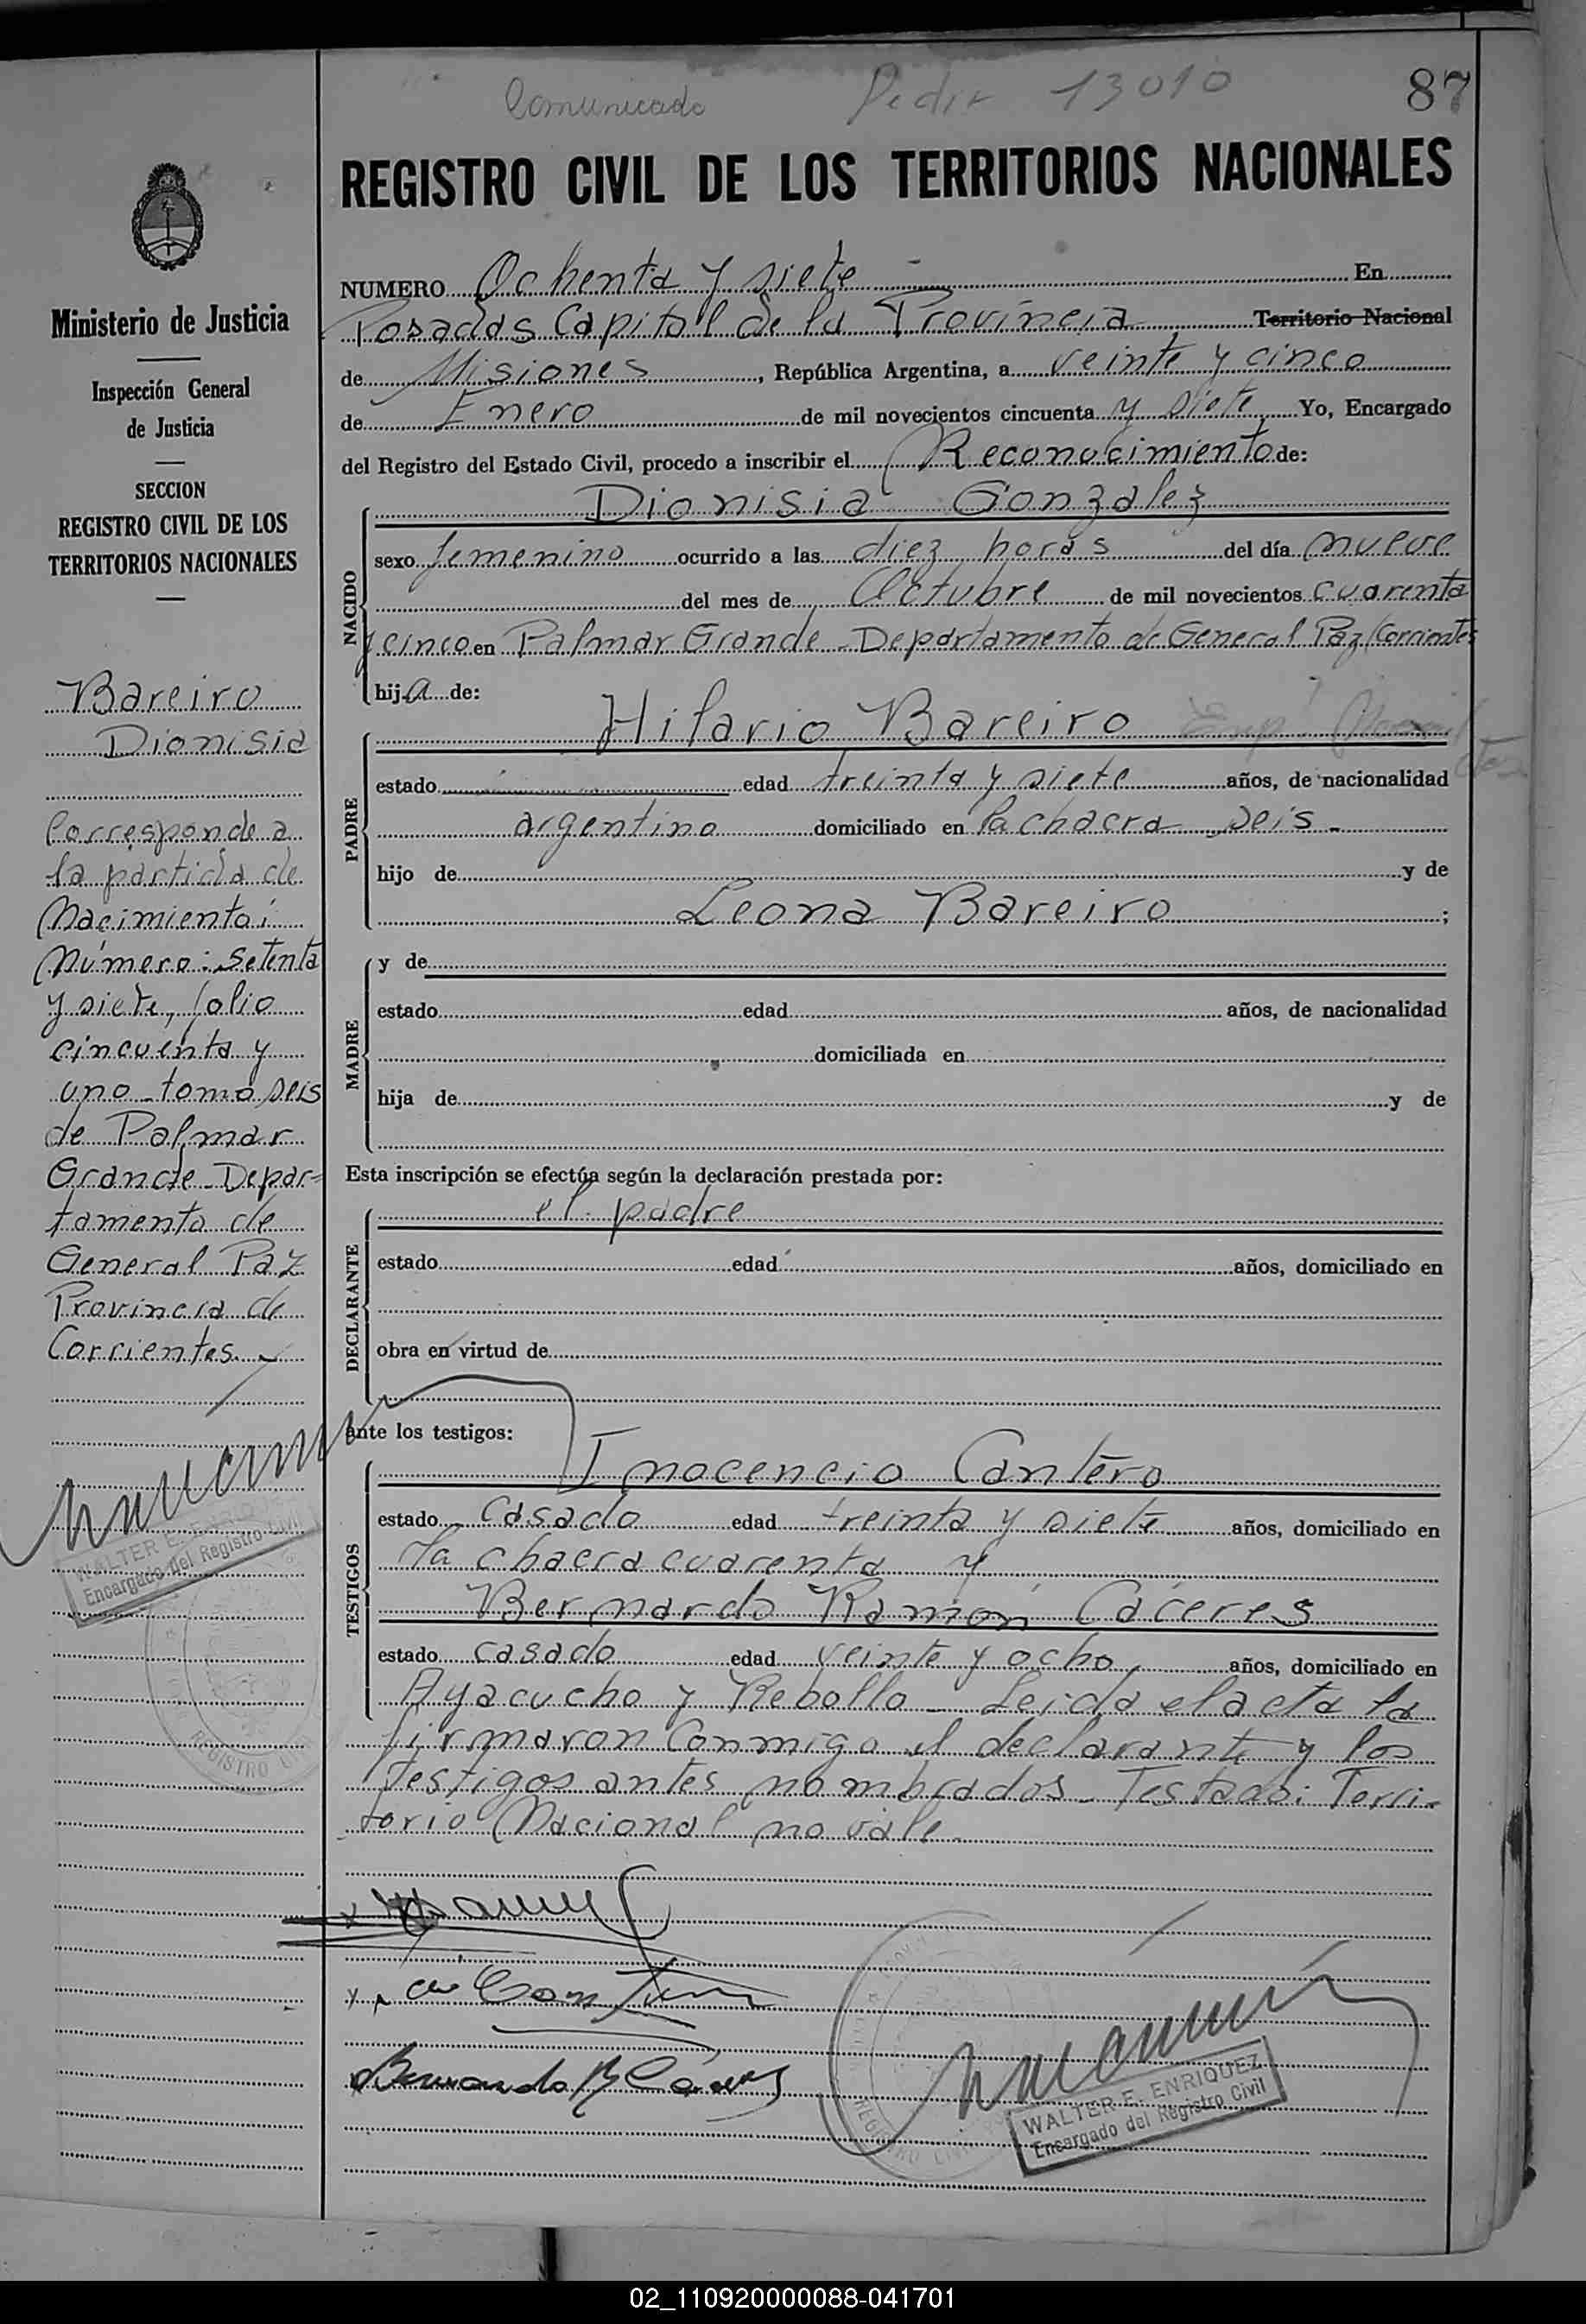 Comunicado Pedir 13010 87
REGISTRO CIVIL DE LOS TERRITORIOS NACIONALES
Ministerio de Justicia
Inspección General
de Justicia
SECCION
REGISTRO CIVIL DE LOS
TERRITORIOS NACIONALES
Bareiro
Dionisia
Corresponde a
la partida de
Nacimiento:
Número: Setenta
y siete, folio
cincuenta y
uno - tomo seis
de Palmar
Grande - Depar-
tamento de
General Paz
Provincia de
Corrientes.
WALTER E. ENRIQUEZ
Encargado del Registro Civil
REGISTRO
NUMERO Ochenta y siete En
Posadas Capital de la Provincia Territorio Nacional
de Misiones, República Argentina, a veinte y cinco
de Enero de mil novecientos cincuenta y siete Yo, Encargado
del Registro del Estado Civil, procedo a inscribir el Reconocimiento de:
NACIDO
Dionisia Gonzalez
sexo femenino ocurrido a las diez horas del día nueve
del mes de Octubre de mil novecientos cuarenta
y cinco en Palmar Grande - Departamento de General Paz (Corrientes
hija de:
PADRE
Hilario Bareiro
estado edad treinta y siete años, de nacionalidad
argentino domiciliado en la chacra seis -
hijo de y de
Leona Bareiro ;
MADRE
y de
estado edad años, de nacionalidad
domiciliada en
hija de y de
Esta inscripción se efectúa según la declaración prestada por:
DECLARANTE
el padre
estado edad años, domiciliado en
obra en virtud de
ante los testigos:
TESTIGOS
Inocencio Cantero
estado casado edad treinta y siete años, domiciliado en
la chacra cuarenta y
Bernardo Ramón Cáceres
estado casado edad veinte y ocho, años, domiciliado en
Ayacucho y Rebollo - Leida el acta la
firmaron conmigo el declarante y los
testigos antes nombrados - Testado: Terri-
torio Nacional no vale.
Bernardo R Cáceres
WALTER E. ENRIQUEZ
Encargado del Registro Civil
02_110920000088-041701